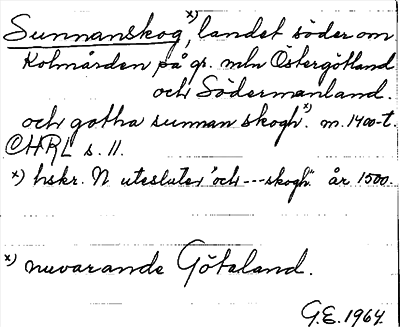 Sunnanskog, x) landet söder om
Kolmården på gr. mln Östergötland
och Södermanland.
och gotha sunnan skogh. x) m. 1400-t.
CHRL s. 11.
x) hskr. N utesluter "och --- skogh". år 1500.
x) nuvarande Götaland.
G.E. 1964.